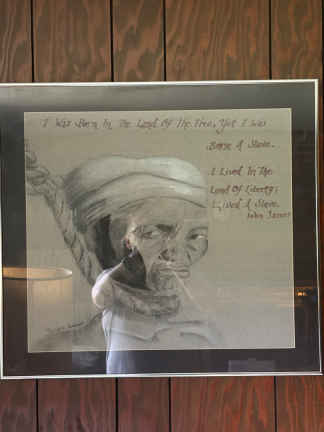 I Was Born In The Land Of The Free, Yet I was
Born A Slave.
I Lived In The
Land Of Liberty;
I Lived A Slave.
John James